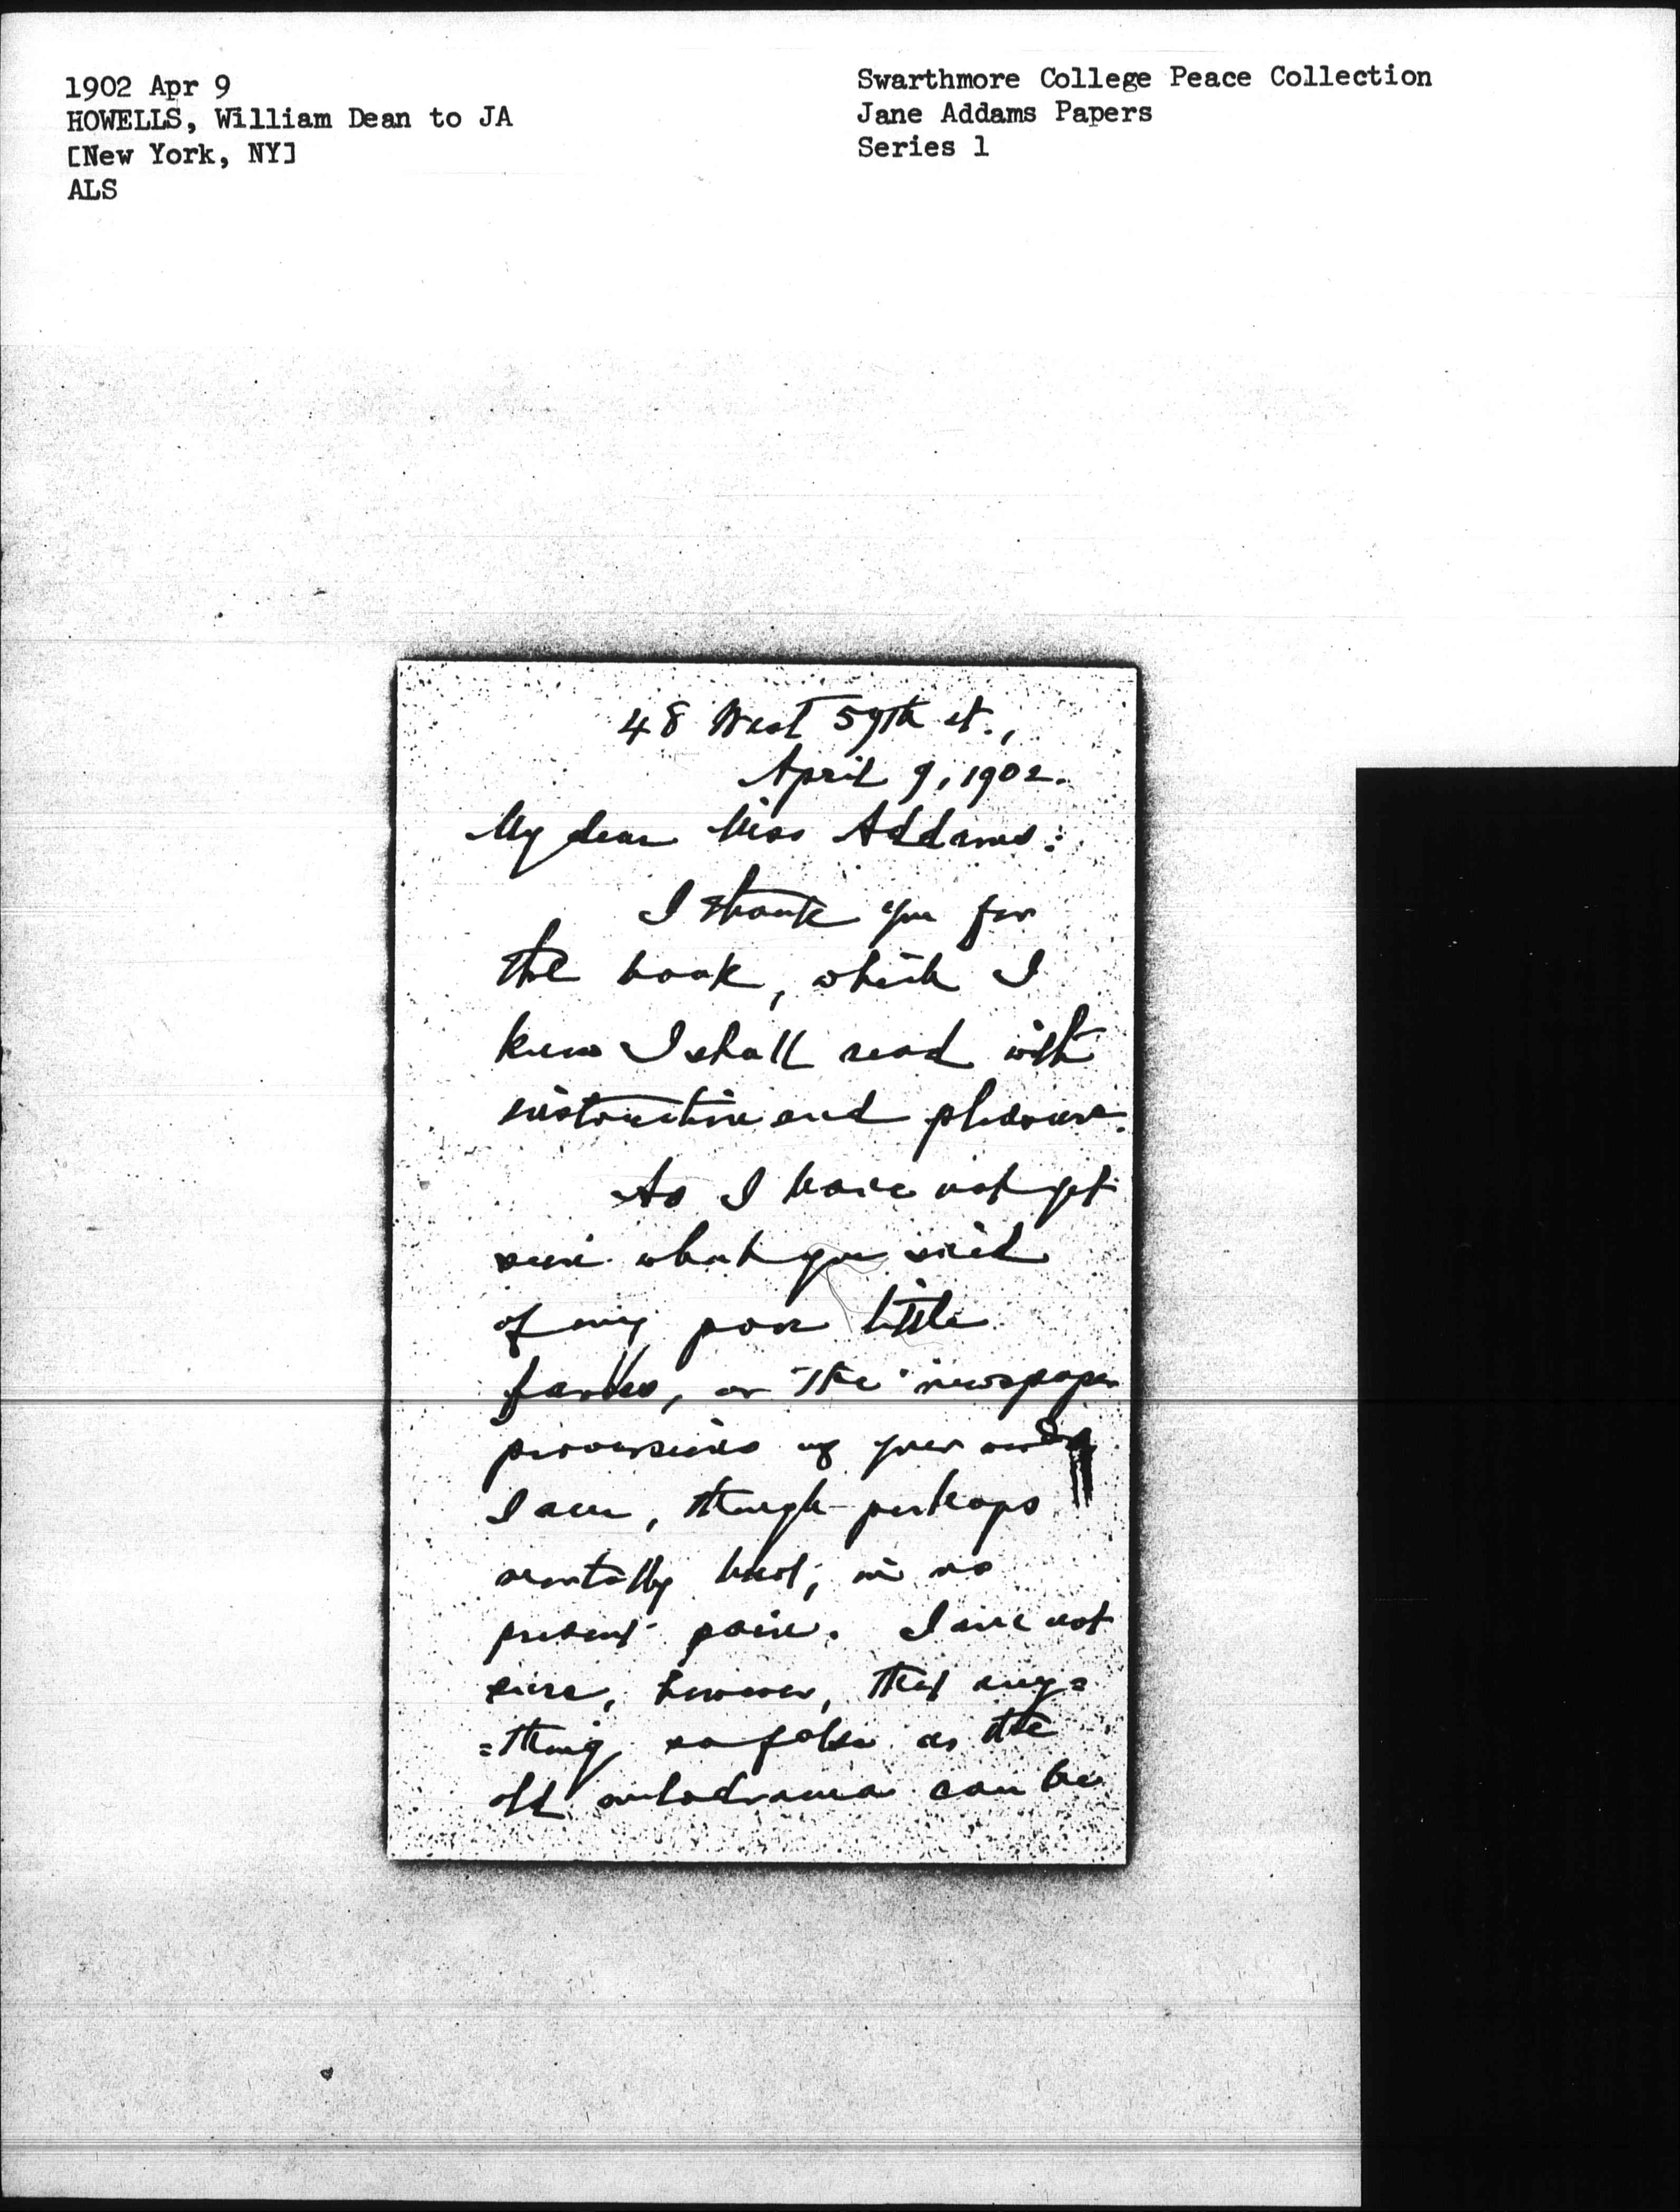 1902 Apr 9
HOWELLS, William Dean to JA
[New York, NY]
ALS
Swarthmore College Peace Collection
Jane Addams Papers
Series 1
48 West 59th st.,
April 9, 1902.
My dear Miss Addams:
I thank you for
the book, which I
know I shall read with
instruction and pleasure.
As I have not yet
seen what you said
of my poor little
farces, or the newspaper
perversions of your
I am, though perhaps
mortally hurt, in no
present pain. I am not
sure, however, that any=
=thing so false as the
old melodrama can be